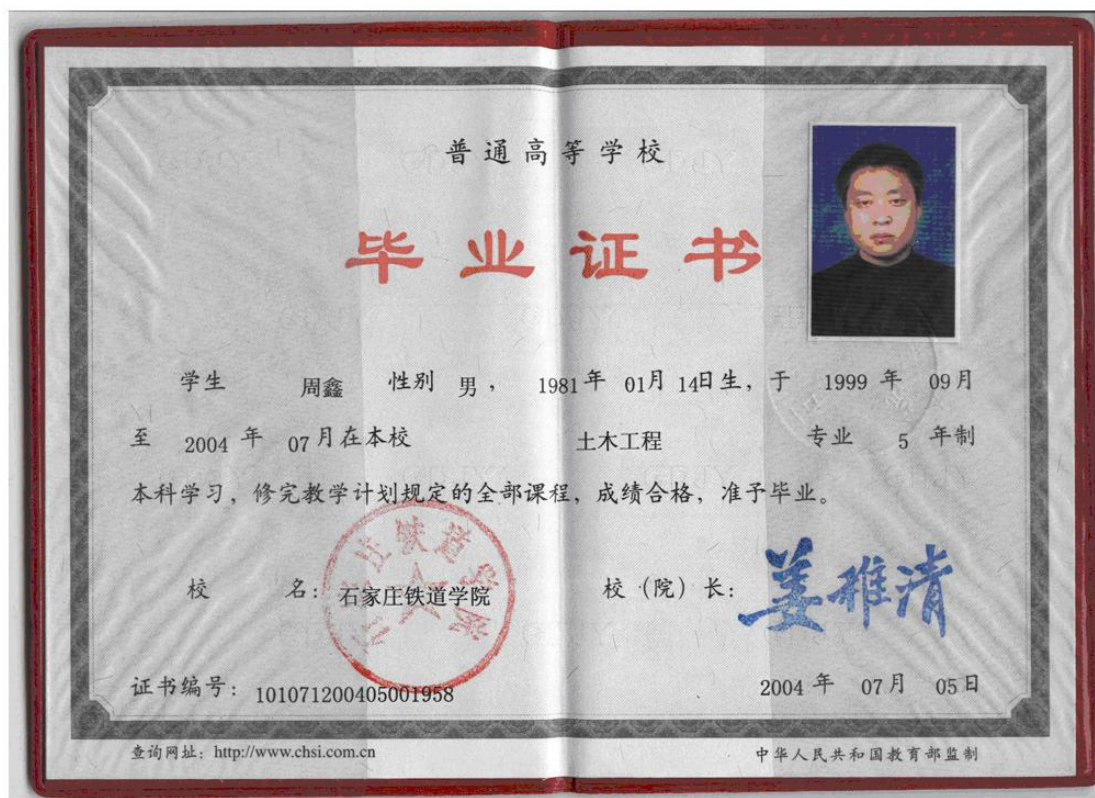 普通高等学校
毕业证书
学生 周鑫 性别 男, 1981年 01月 14日生, 于 1999 年 09月
至 2004 年 07月在本校 土木工程 专业 5 年制
本科学习, 修完教学计划规定的全部课程, 成绩合格, 准予毕业。
校 名: 石家庄铁道学院 校(院)长: 姜稚清
证书编号: 101071200405001958 2004 年 07月 05日
查询网址: http://www.chsi.com.cn 中华人民共和国教育部监制